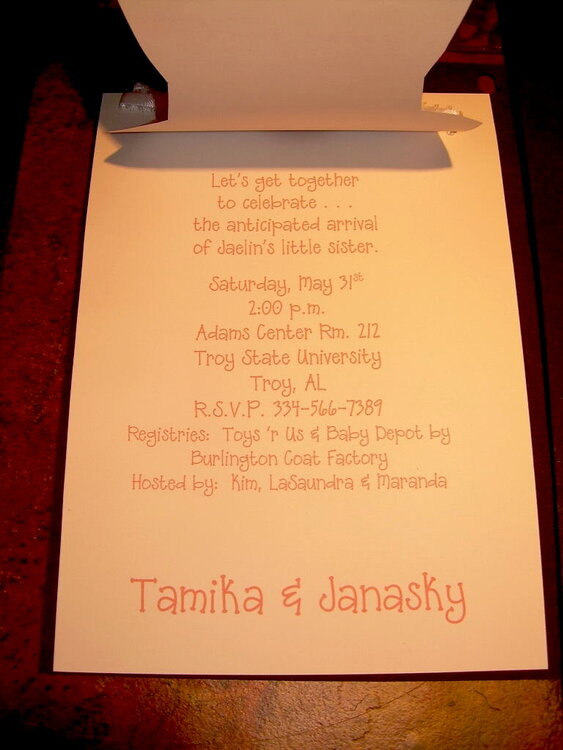 Let's get together
to celebrate . . .
the anticipated arrival
of Jaelin's little sister.
Saturday, May 31st
2:00 p.m.
Adams Center Rm. 212
Troy State University
Troy, AL
R.S.V.P. 334-566-7389
Registries: Toys 'r Us & Baby Depot by
Burlington Coat Factory
Hosted by: Kim, LaSaundra & Maranda
Tamika & Janasky